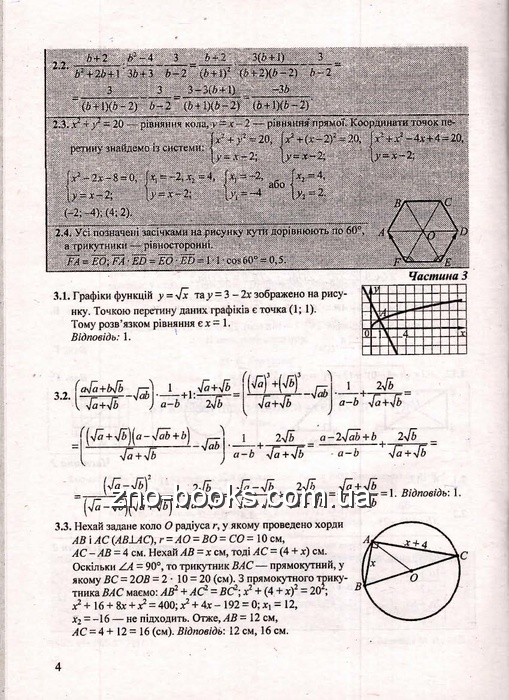 2.2. \frac{b+2}{b²+2b+1} : \frac{b²-4}{3b+3} - \frac{3}{b-2} = \frac{b+2}{(b+1)²} · \frac{3(b+1)}{(b+2)(b-2)} - \frac{3}{b-2} =
= \frac{3}{(b+1)(b-2)} - \frac{3}{b-2} = \frac{3-3(b+1)}{(b+1)(b-2)} = \frac{-3b}{(b+1)(b-2)}.
2.3. x² + y² = 20 — рівняння кола, y = x – 2 — рівняння прямої. Координати точок пе-
ретину знайдемо із системи: { x² + y² = 20, y = x – 2; { x² + (x–2)² = 20, y = x – 2; { x² + x² – 4x + 4 = 20, y = x – 2;
{ x² – 2x – 8 = 0, y = x – 2; { x₁ = –2, x₂ = 4, y = x – 2; { x₁ = –2, y₁ = –4 або { x₂ = 4, y₂ = 2.
(–2; –4); (4; 2).
2.4. Усі позначені засічками на рисунку кути дорівнюють по 60°,
а трикутники — рівносторонні.
FA = EO; FA · ED = EO · ED = 1·1·cos60° = 0,5.
B C
A O D
F E
Частина 3
3.1. Графіки функцій y = √x та y = 3 – 2x зображено на рису-
нку. Точкою перетину даних графіків є точка (1; 1).
Тому розв’язком рівняння є x = 1.
Відповідь: 1.
y
A
0 1 4 x
3.2. (\frac{a√a+b√b}{√a+√b} - √ab) · \frac{1}{a-b} + 1 : \frac{√a+√b}{2√b} = (\frac{(√a)³+(√b)³}{√a+√b} - √ab) · \frac{1}{a-b} + \frac{2√b}{√a+√b} =
= (\frac{(√a+√b)(a-√ab+b)}{√a+√b} - √ab) · \frac{1}{a-b} + \frac{2√b}{√a+√b} = \frac{a-2√ab+b}{a-b} + \frac{2√b}{√a+√b} =
= \frac{(√a-√b)²}{(√a-√b)(√a+√b)} + \frac{2√b}{√a+√b} = \frac{√a-√b}{√a+√b} + \frac{2√b}{√a+√b} = \frac{√a+√b}{√a+√b} = 1. Відповідь: 1.
zno-books.com.ua
3.3. Нехай задане коло O радіуса r, у якому проведено хорди
AB і AC (AB⊥AC), r = AO = BO = CO = 10 см,
AC – AB = 4 см. Нехай AB = x см, тоді AC = (4 + x) см.
Оскільки ∠A = 90°, то трикутник BAC — прямокутний, у
якому BC = 2OB = 2 · 10 = 20 (см). З прямокутного трику-
тника BAC маємо: AB² + AC² = BC²; x² + (4 + x)² = 20²;
x² + 16 + 8x + x² = 400; x² + 4x – 192 = 0; x₁ = 12,
x₂ = –16 — не підходить. Отже, AB = 12 см,
AC = 4 + 12 = 16 (см). Відповідь: 12 см, 16 см.
A x + 4 C
x O
B
4